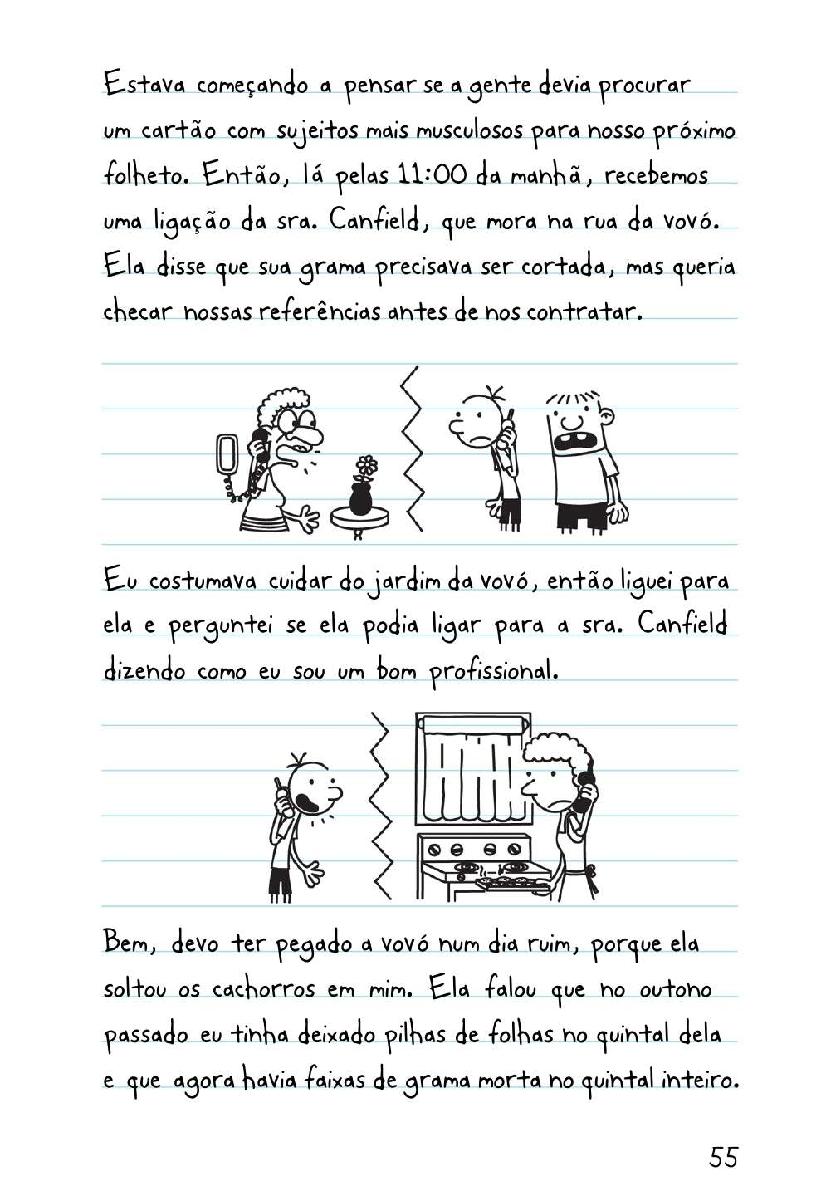 Estava começando a pensar se a gente devia procurar
um cartão com sujeitos mais musculosos para nosso próximo
folheto. Então, lá pelas 11:00 da manhã, recebemos
uma ligação da sra. Canfield, que mora na rua da vovó.
Ela disse que sua grama precisava ser cortada, mas queria
checar nossas referências antes de nos contratar.
Eu costumava cuidar do jardim da vovó, então liguei para
ela e perguntei se ela podia ligar para a sra. Canfield
dizendo como eu sou um bom profissional.
Bem, devo ter pegado a vovó num dia ruim, porque ela
soltou os cachorros em mim. Ela falou que no outono
passado eu tinha deixado pilhas de folhas no quintal dela
e que agora havia faixas de grama morta no quintal inteiro.
55